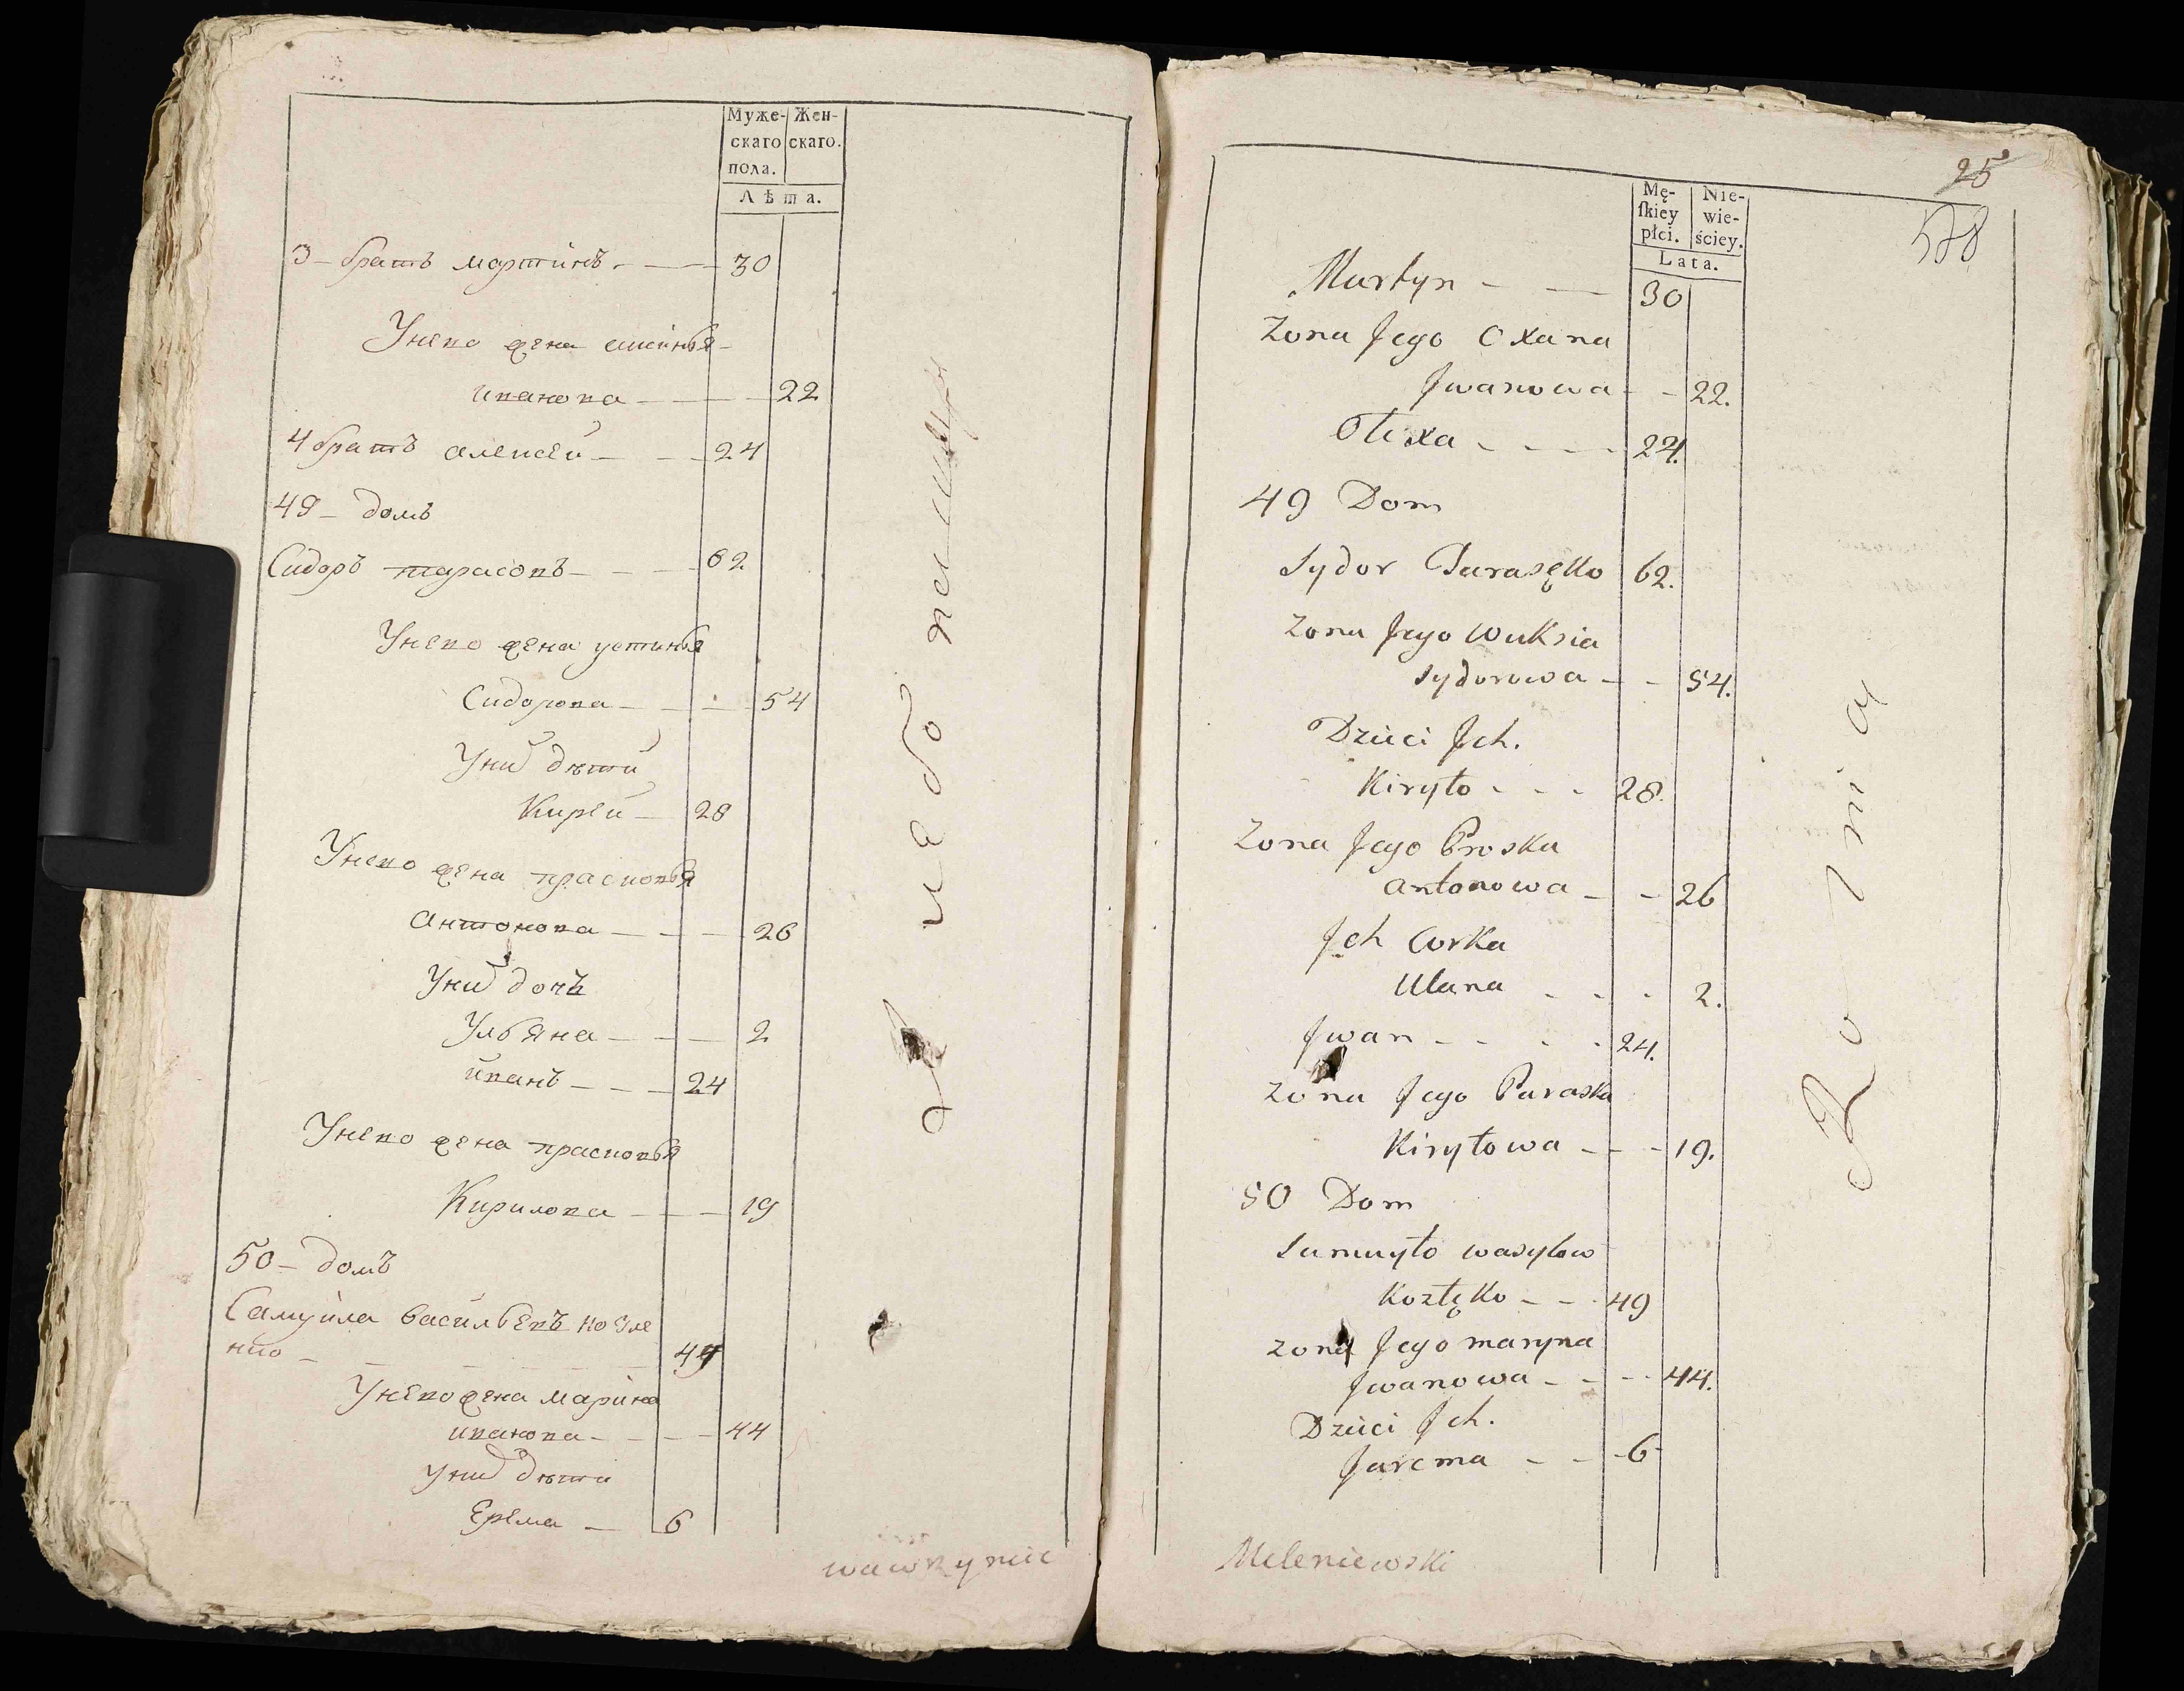 Муже-
скаго
пола.
Жен-
скаго.
Лѣта.
3 - братъ мартинъ. 30
Унево жена
иванова 22
4 братъ алексѣй 24
49 - домъ
Сидоръ тарасовъ 62
Унево жена устинья
Сидорова 54
Уних дѣти
Кирѣй 28
Унево жена прасковья
Антонова 26
Уних дочь
Ульяна 2
иванъ 24
Унево жена прасковья
Кирилова 19
50 - домъ
Самуила васильевъ козле
нко 49
Унево жена марина
иванова 44
Уних дѣти
Ерема 6
wawrzyniec
25
578
Mę-
ſkiey
płci.
Nie-
wie-
ściey.
Lata.
Martyn 30
Zona Jego Oxana
Jwanowa 22.
Olexa 24.
49 Dom
Sydor Tarasęko 62.
Zona Jego Wuksia
Sydorowa 54.
Dzieci Jch.
Kiryło 28.
Zona Jego Proska
Antonowa 26
Jch Corka
Ulana 2.
Jwan 24.
Zona Jego Paraska
Kiryłowa 19.
50 Dom
Samuyło wasylow
Kozłęko 49
Zona Jego maryna
Jwanowa 44.
Dzieci Jch.
Jarema 6
Meleniewski